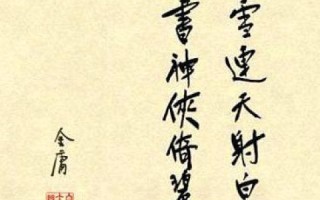 雪連天射白
書神俠倚碧
金庸